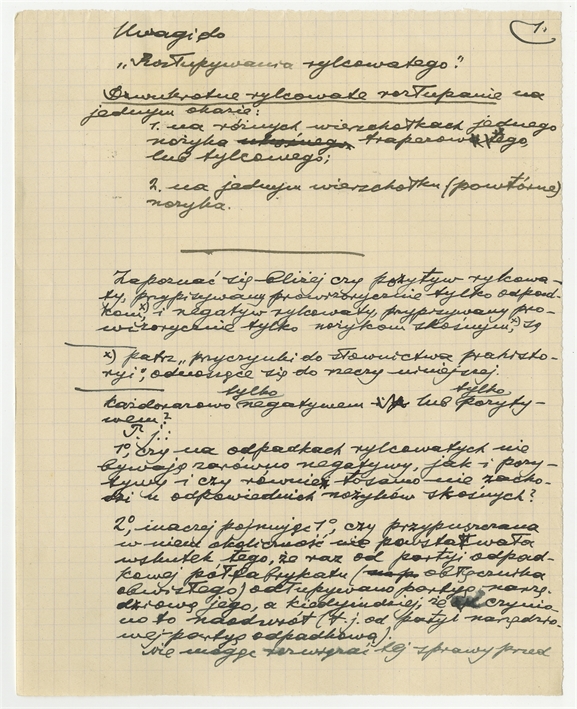 1.
Uwagi do
„Rozłupywania rylcowatego".
Dwukrotne rylcowate rozłupanie na
jednym okazie:
1. na różnych wierzchołkach jednego
nożyka traperowatego
lub tylcowego;
2. na jednym wierzchołku (powtórne)
nożyka.
Zapoznać się bliżej czy pozytyw rylcowa-
ty, przypisywany prowizorycznie tylko odpad-
kom x) i negatyw rylcowaty, przypisywany pro-
wizorycznie tylko nożykom skośnym x) są
x) patrz „przyczynki do słownictwa prehisto-
ryi", odnoszące się do rzeczy niniejszej.
tylko tylko
każdorazowo negatywem lub pozyty-
wem?
T. j.:
1º czy na odpadkach rylcowatych nie
bywają zarówno negatywy, jak i pozy-
tywy i czy również to samo nie zacho-
dzi u odpowiednich nożyków skośnych?
2º, inaczej pojmując 1º, czy przypuszczana
w niem okoliczność nie powstawała
wskutek tego, że raz od partyi odpad-
kowej półfabrykatu (obłęcznika
obwistego) odłupywano partyę narzę-
dziową jego, a kiedyindziej, że czynio-
no to naodwrót (t. j. od partyi narzędzio-
wej partyę odpadkową).
Nie mogąc rozwiązać tej sprawy przed